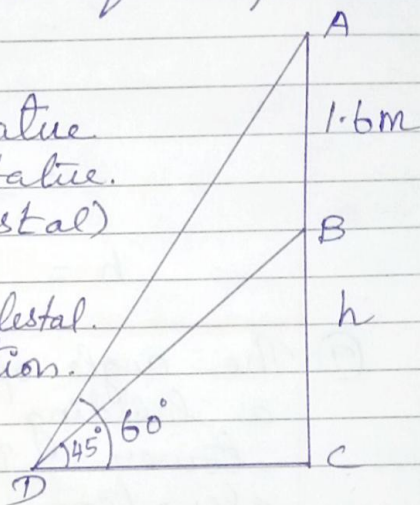 A
atue
1.6m
tatue.
stal)
B
destal.
h
tion.
60°
45°
C
D